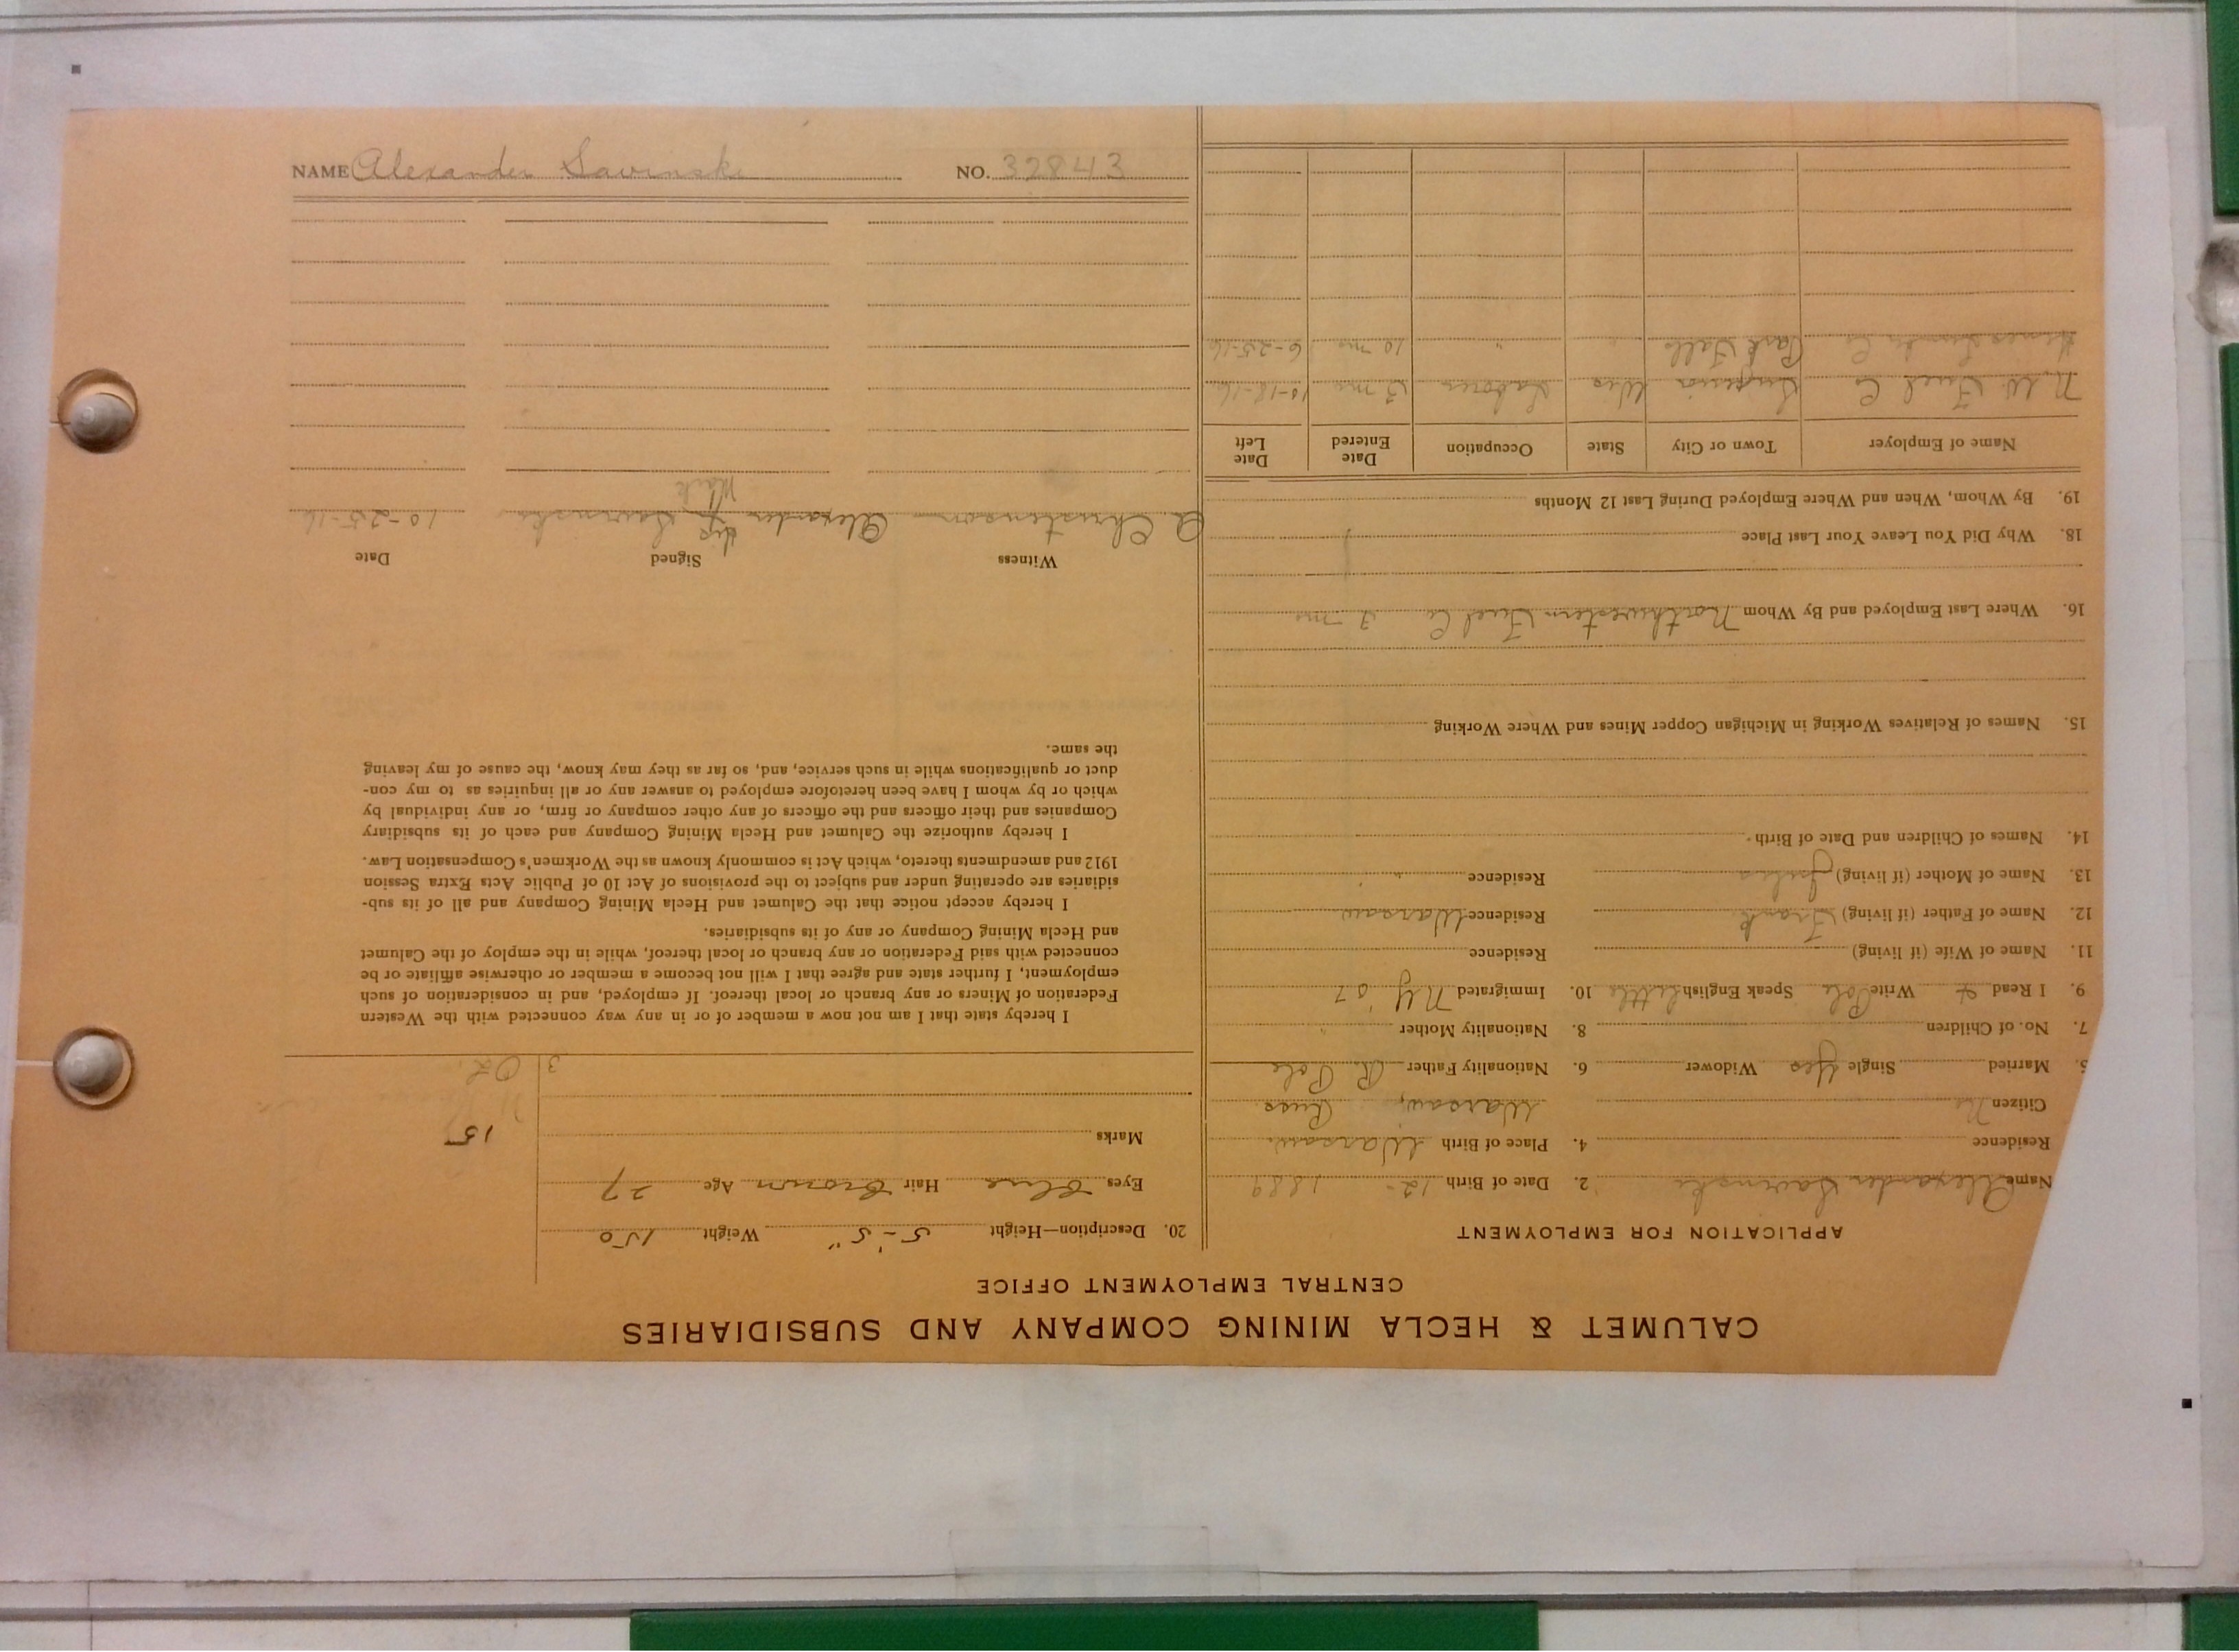 CALUMET & HECLA MINING COMPANY AND SUBSIDIARIES
CENTRAL EMPLOYMENT OFFICE
APPLICATION FOR EMPLOYMENT
Name Alexander Savinski 2. Date of Birth 12- 1889
Residence 4. Place of Birth Warsaw
Citizen No Warsaw, Russ
5. Married Single Yes Widower 6. Nationality Father R. Pole
7. No. of Children 8. Nationality Mother "
9. I Read & Write Pole Speak English little 10. Immigrated N Y '07
11. Name of Wife (if living) Residence
12. Name of Father (if living) Frank Residence Warsaw
13. Name of Mother (if living) Residence "
14. Names of Children and Date of Birth
15. Names of Relatives Working in Michigan Copper Mines and Where Working
16. Where Last Employed and By Whom Northwestern Fuel Co 3 mo
18. Why Did You Leave Your Last Place
19. By Whom, When and Where Employed During Last 12 Months
Name of Employer Town or City State Occupation Date Entered Date Left
N. W. Fuel Co Superior Wis Laborer 3 mo 10-18-16
Hines Lumber Co Park Falls " " 10 mo 6-25-16
20. Description—Height 5'-5" Weight 150
Eyes Blue Hair Brown Age 27
Marks
15
3
OL
I hereby state that I am not now a member of or in any way connected with the Western
Federation of Miners or any branch or local thereof. If employed, and in consideration of such
employment, I further state and agree that I will not become a member or otherwise affiliate or be
connected with said Federation or any branch or local thereof, while in the employ of the Calumet
and Hecla Mining Company or any of its subsidiaries.
I hereby accept notice that the Calumet and Hecla Mining Company and all of its sub-
sidiaries are operating under and subject to the provisions of Act 10 of Public Acts Extra Session
1912 and amendments thereto, which Act is commonly known as the Workmen's Compensation Law.
I hereby authorize the Calumet and Hecla Mining Company and each of its subsidiary
Companies and their officers and the officers of any other company or firm, or any individual by
which or by whom I have been heretofore employed to answer any or all inquiries as to my con-
duct or qualifications while in such service, and, so far as they may know, the cause of my leaving
the same.
Witness Signed Date
his
A. Christenson Alexander X Savinski 10-25-16
Mark
NAME Alexander Savinski NO. 32843